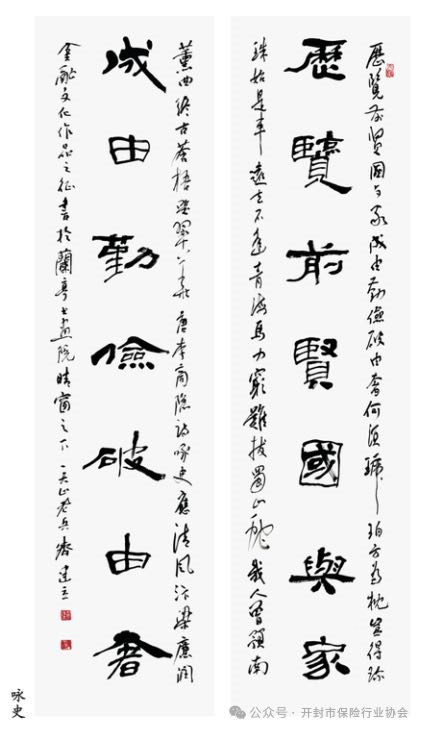 歷覽前賢國與家成由勤儉破由奢何須琥珀方爲枕豈得珍
歷覽前賢國與家
珠始是車遠去不逢青海馬力窮難拔蜀山蛇幾人曾預南
薰曲終古蒼梧哭翠華唐李商隱詩詠史應清風汴梁廉潤
成由勤儉破由奢
金融文化作品之征書於蘭亭書畫院晴窗之下老兵齋建立
咏史
公众号 · 开封市保险行业协会